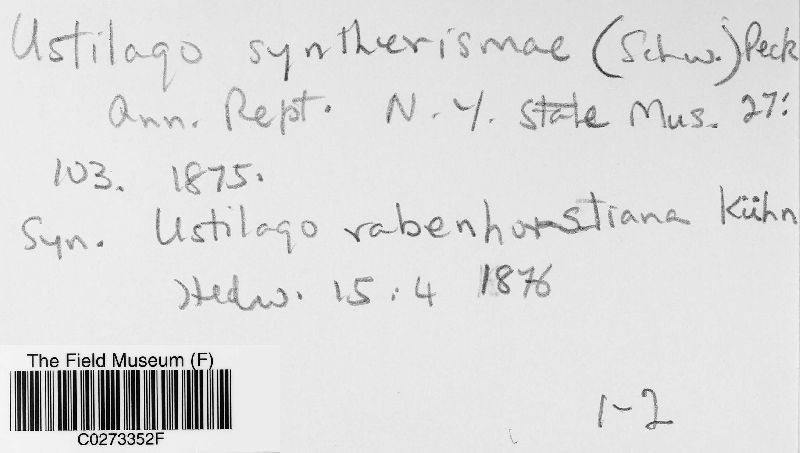 Ustilago syntherismae (Schw.) Peck
Ann. Rept. N.Y. State Mus. 27:
103. 1875.
Syn. Ustilago rabenhorstiana Kühn
Hedw. 15:4 1876
The Field Museum (F)
C0273352F
1-2